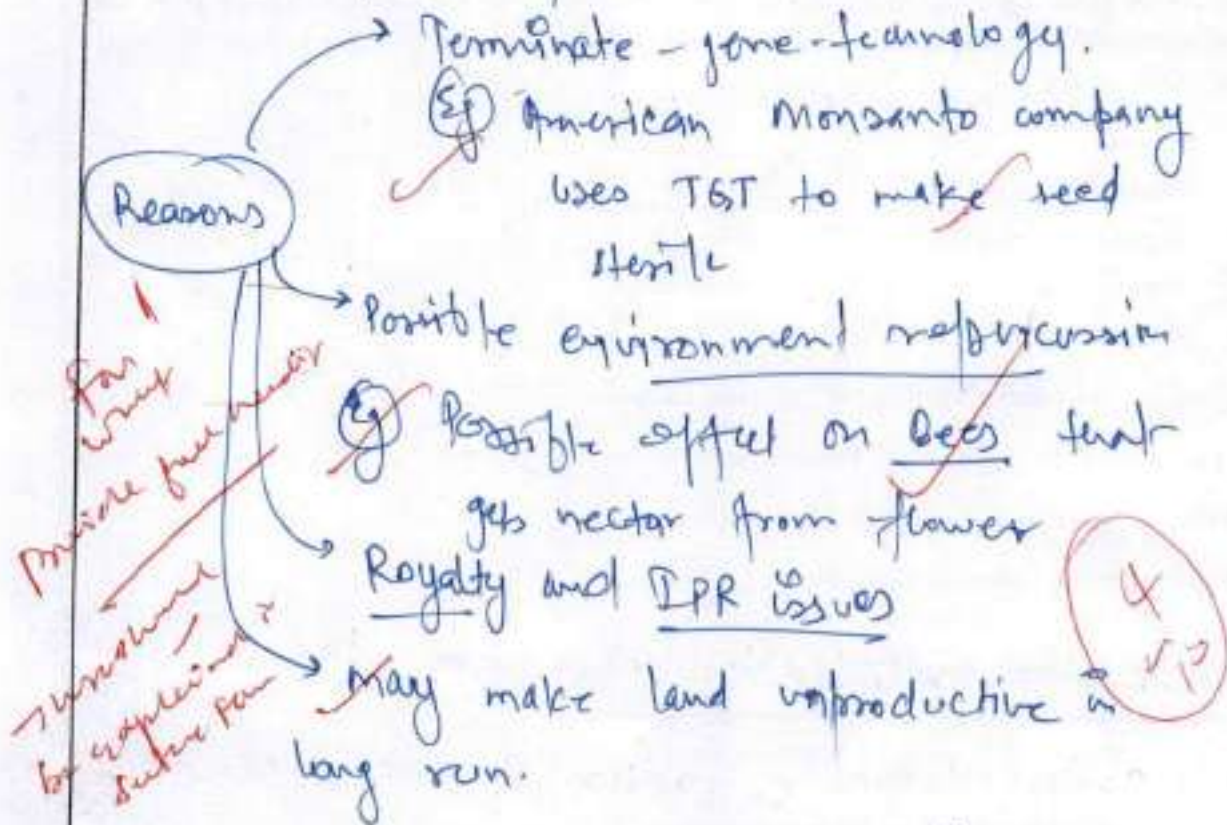 Terminate - gene - technology.
Eg American Monsanto company
uses TGT to make seed
sterile
Reasons
Possible environment repurcussion
Eg Possible effect on Bees that
gets nectar from flower
Royalty and IPR issues
May make land unproductive in
long run.
For
what
provide
4